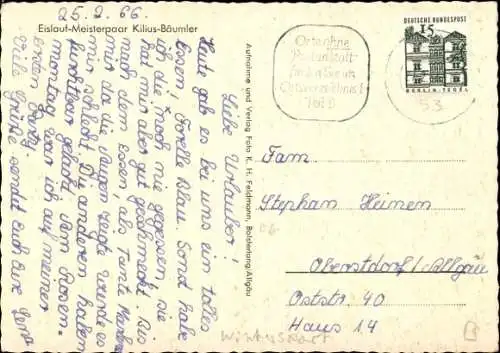 25.2.66.
Eislauf-Meisterpaar Kilius-Bäumler
Liebe Urlauber!
Heute gab es bei uns ein tolles
Essen. Forelle Blau. Sonst habe
ich die noch nie gegessen, sie
hat mir aber gut geschmeckt. Bis
nach dem Essen, als Tante
mir da die Augen zeigte wurde es
mir schlecht. Die anderen haben
furchtbar gelacht. Am Rosen-
montag war ich auf meiner
ersten Party.
Viele Grüße sendet euch eure
Aufnahme und Verlag Foto K. H. Feldmann, Balderschwang/Allgäu
Orte ohne
Postanstalt
findet Ihr im
Ortsverzeichnis I
Teil B
DEUTSCHE BUNDESPOST
15
BERLIN-TEGEL
53
Fam
Stephan Heinen
Oberstdorf/Allgäu
Oststr. 40
Haus 14
Wintersport
B